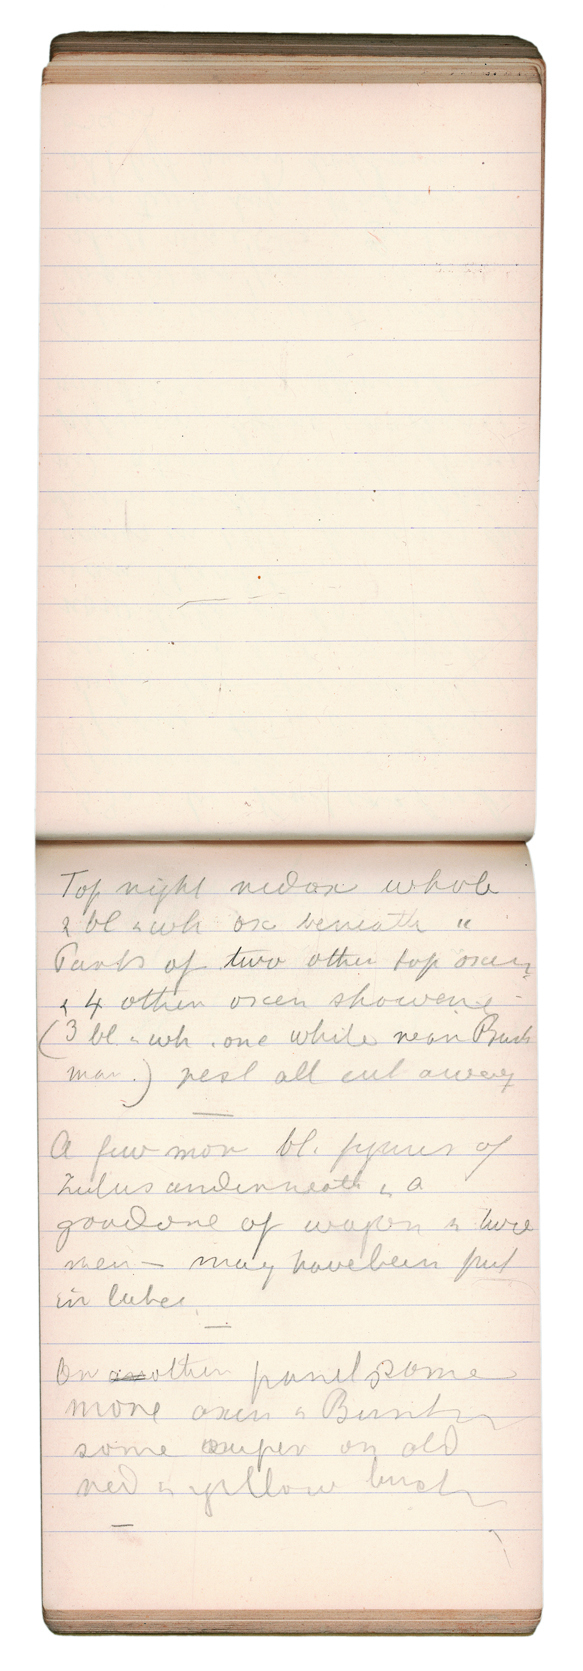 Top right red ox whole
& bl & wh ox beneath "
Parts of two other top oxen
& 4 other oxen showing -
(3 bl & wh. one white near Bush
man.) rest all cut away
A few more bl. figures of
Zulus underneath & a
good one of wagon & two
men — may have been put
in later.
On another panel some
more oxen &
some super on old
red & yellow buck